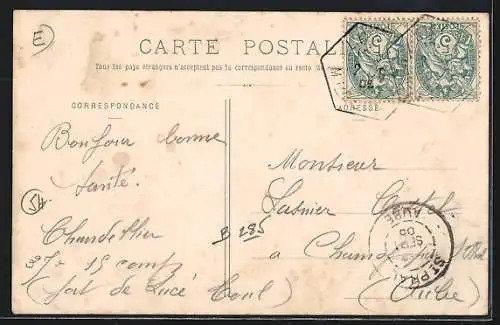 E
CARTE POSTALE
Tous les pays étrangers n'acceptent pas la correspondance au recto
CORRESPONDANCE
ADRESSE
Bonjour bonne
Santé.
54
Chandellier
37e 15 comp
(fort de Lucé Toul)
B 285
Monsieur
à
(Aube)
AUBE
SEPT
05
5
5